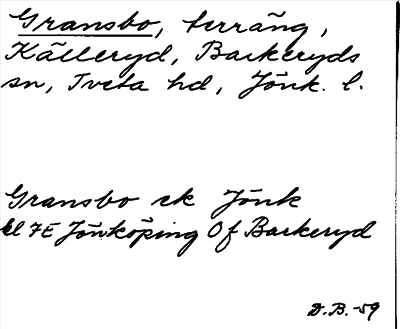 Gransbo, terräng,
Källeryd, Barkeryds
sn, Tveta hd, Jönk. l.
Gransbo ek Jönk
bl 7E Jönköping Of Barkeryd
D.B.-59